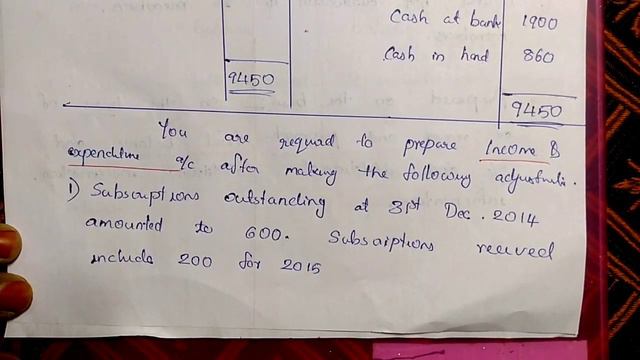 Cash at bank 1900
Cash in hand 860
9450
9450
You are required to prepare Income &
expenditure a/c after making the following adjustments.
1) Subscriptions outstanding at 31st Dec. 2014
amounted to 600. Subscriptions received
include 200 for 2015